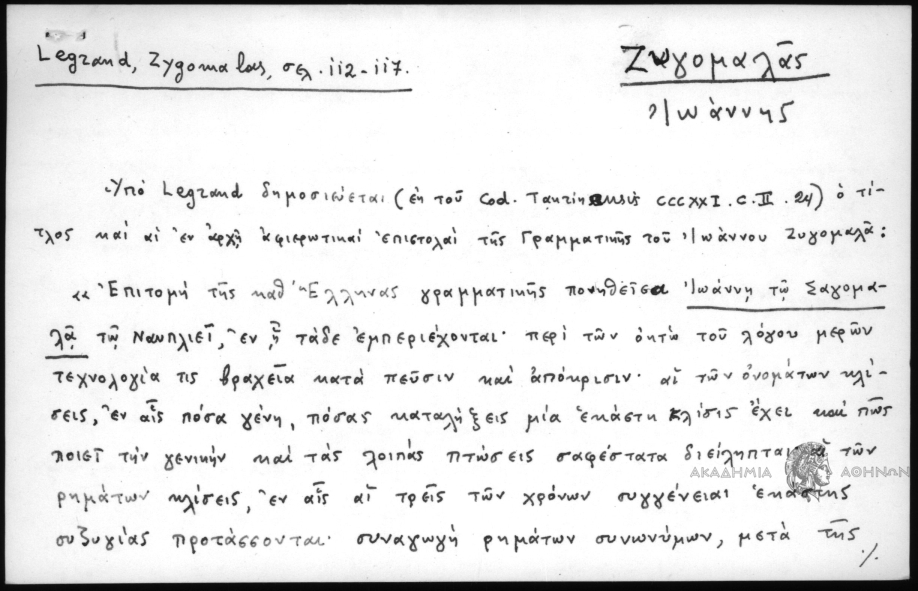 Legrand, Zygomalas, σελ. 112-117.
Ζυγομαλᾶς
Ἰωάννης
Ὑπὸ Legrand δημοσιεύεται (ἐκ τοῦ Cod. Taurinensis CCCXXI. C. II. 24) ὁ τί-
τλος καὶ αἱ ἐν ἀρχῇ ἀφιερωτικαὶ ἐπιστολαὶ τῆς Γραμματικῆς τοῦ Ἰωάννου Ζυγομαλᾶ:
«Ἐπιτομὴ τῆς καθ' Ἕλληνας γραμματικῆς πονηθεῖσα Ἰωάννῃ τῷ Ζαγομα-
λᾷ τῷ Ναυπλιεῖ, ἐν ᾗ τάδε ἐμπεριέχονται· περὶ τῶν ὀκτὼ τοῦ λόγου μερῶν
τεχνολογία τις βραχεῖα κατὰ πεῦσιν καὶ ἀπόκρισιν· αἱ τῶν ὀνομάτων κλί-
σεις, ἐν αἷς πόσα γένη, πόσας καταλήξεις μία ἑκάστη κλίσις ἔχει καὶ πῶς
ποιεῖ τὴν γενικὴν καὶ τὰς λοιπὰς πτώσεις σαφέστατα διείληπται αἱ τῶν
ρημάτων κλίσεις, ἐν αἷς αἱ τρεῖς τῶν χρόνων συγγένειαι ἑκάστης
συζυγίας προτάσσονται· συναγωγὴ ρημάτων συνωνύμων, μετὰ τῆς
./.
ΑΚΑΔΗΜΙΑ ΑΘΗΝΩΝ